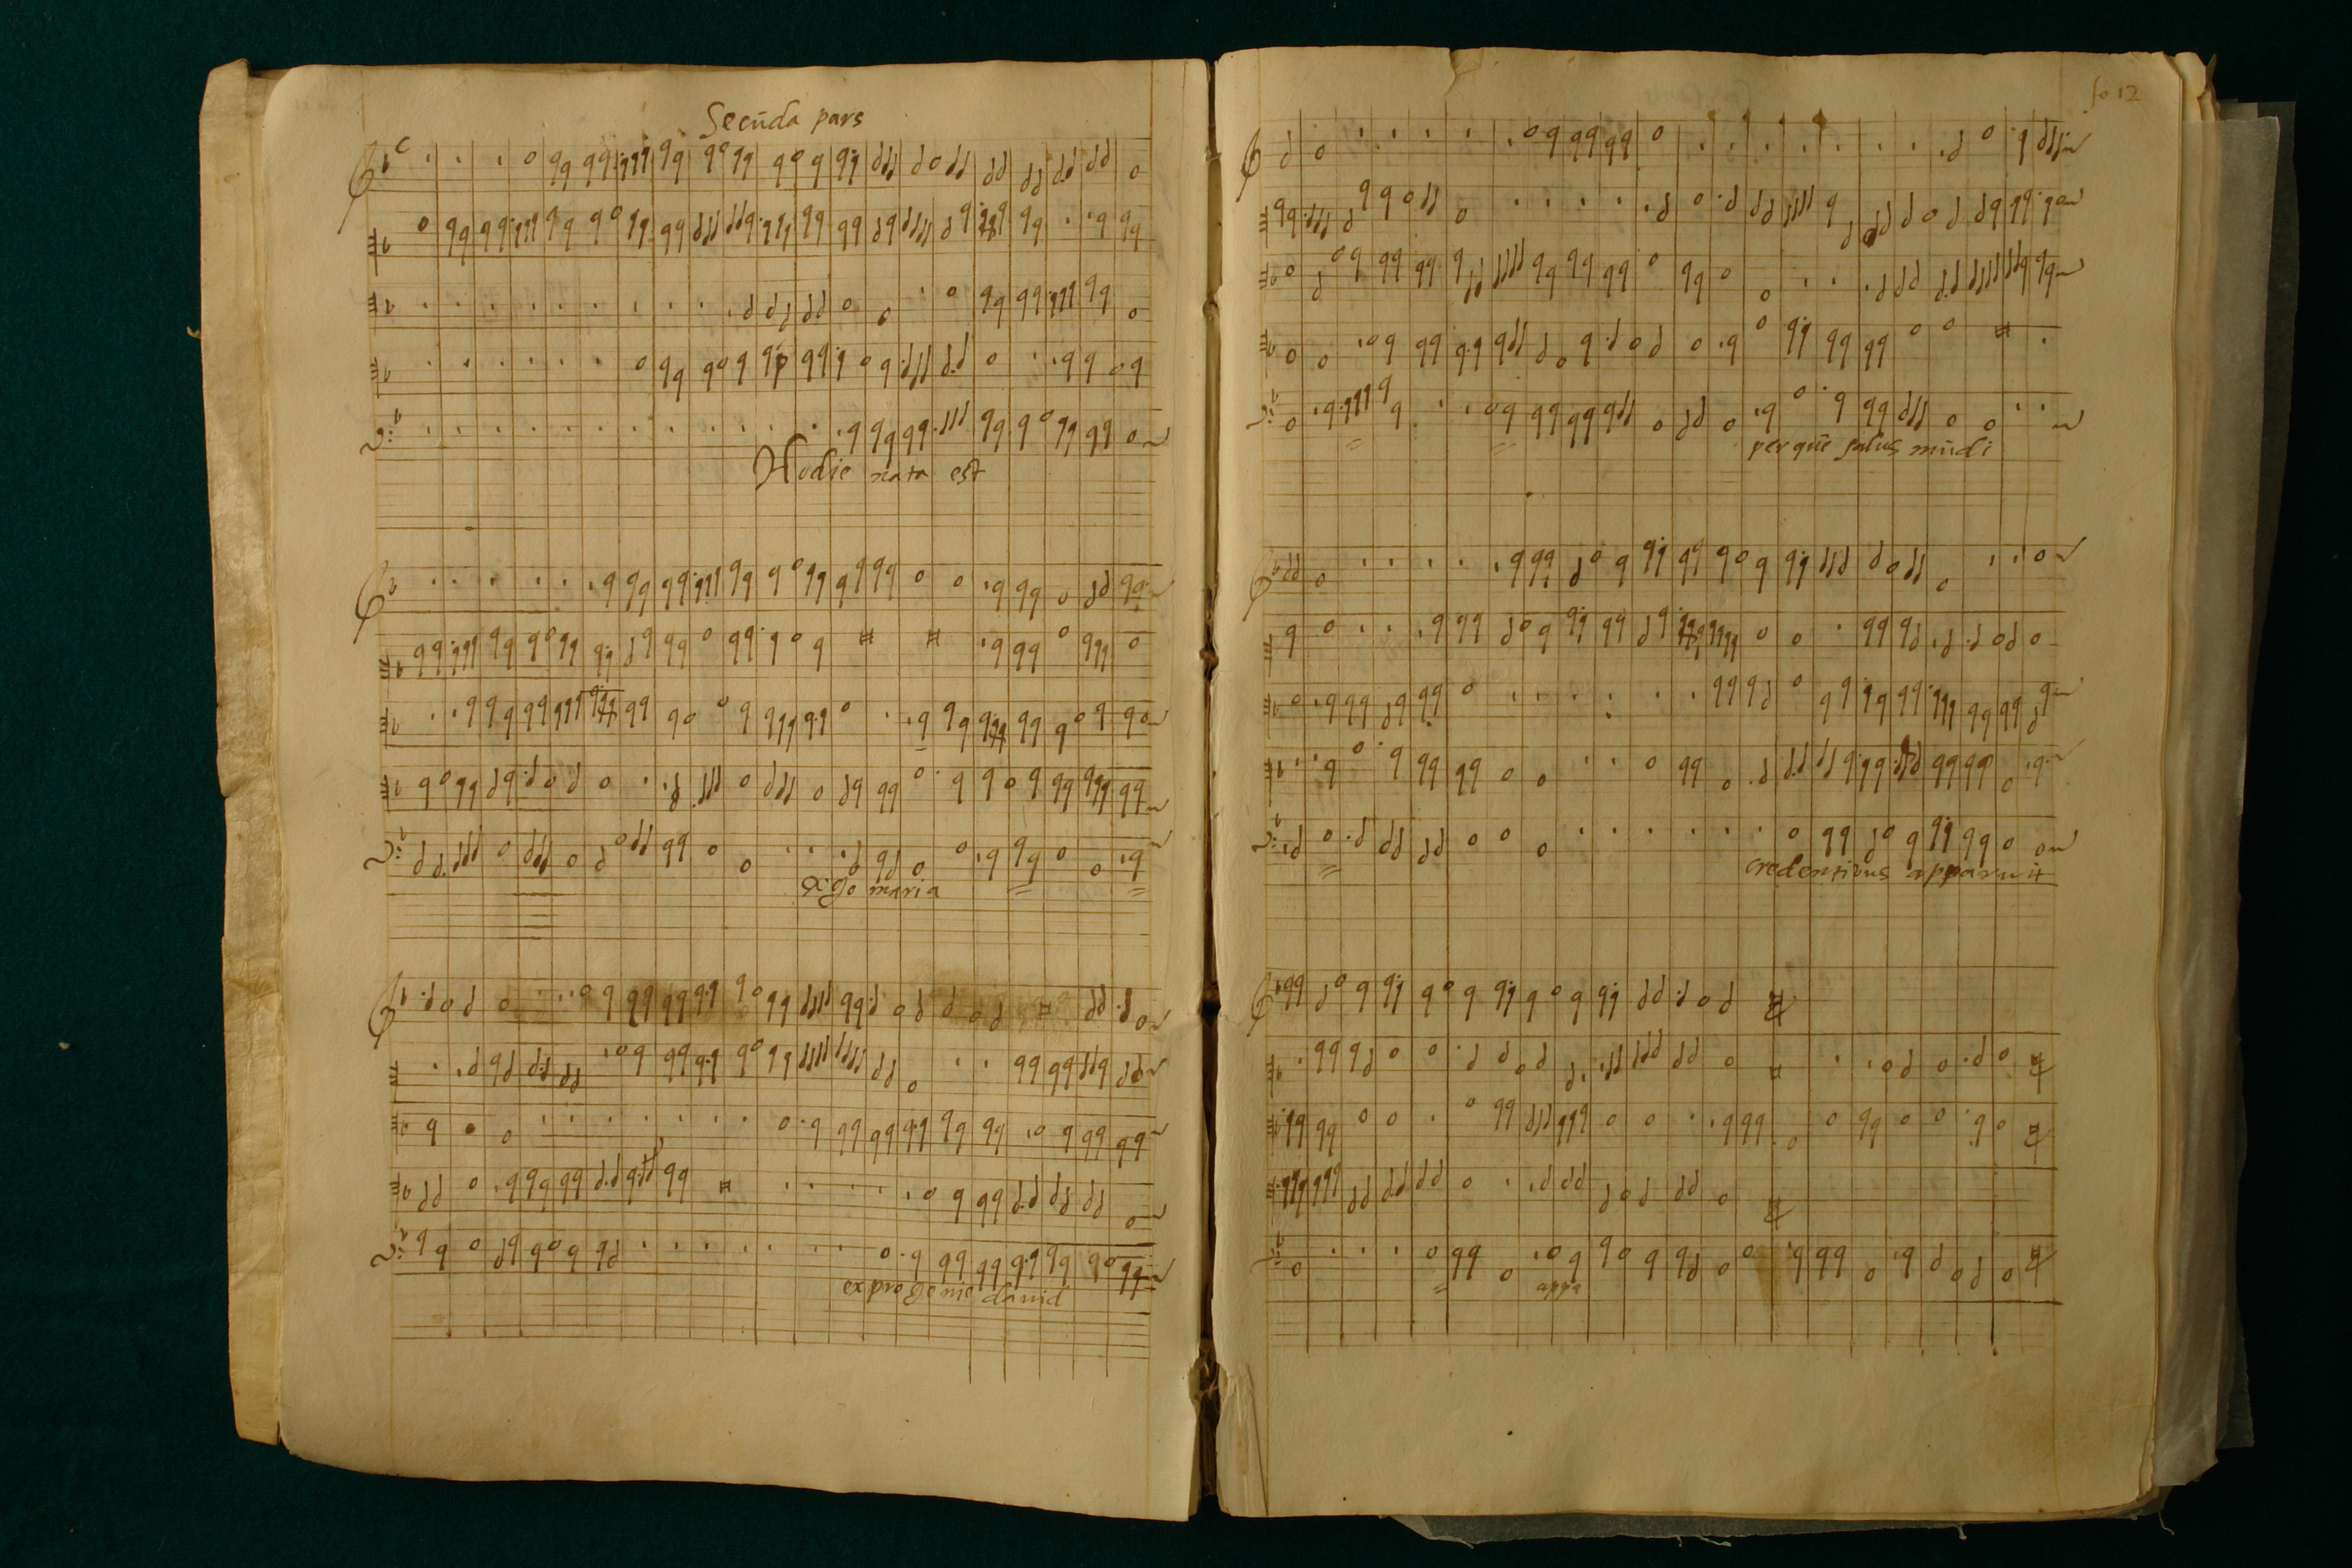 Secūda pars
Hodie nata est
Go maria
ex pro genie dauid
fo 12
per quē salus mūdi
credentibus apparuit
appa